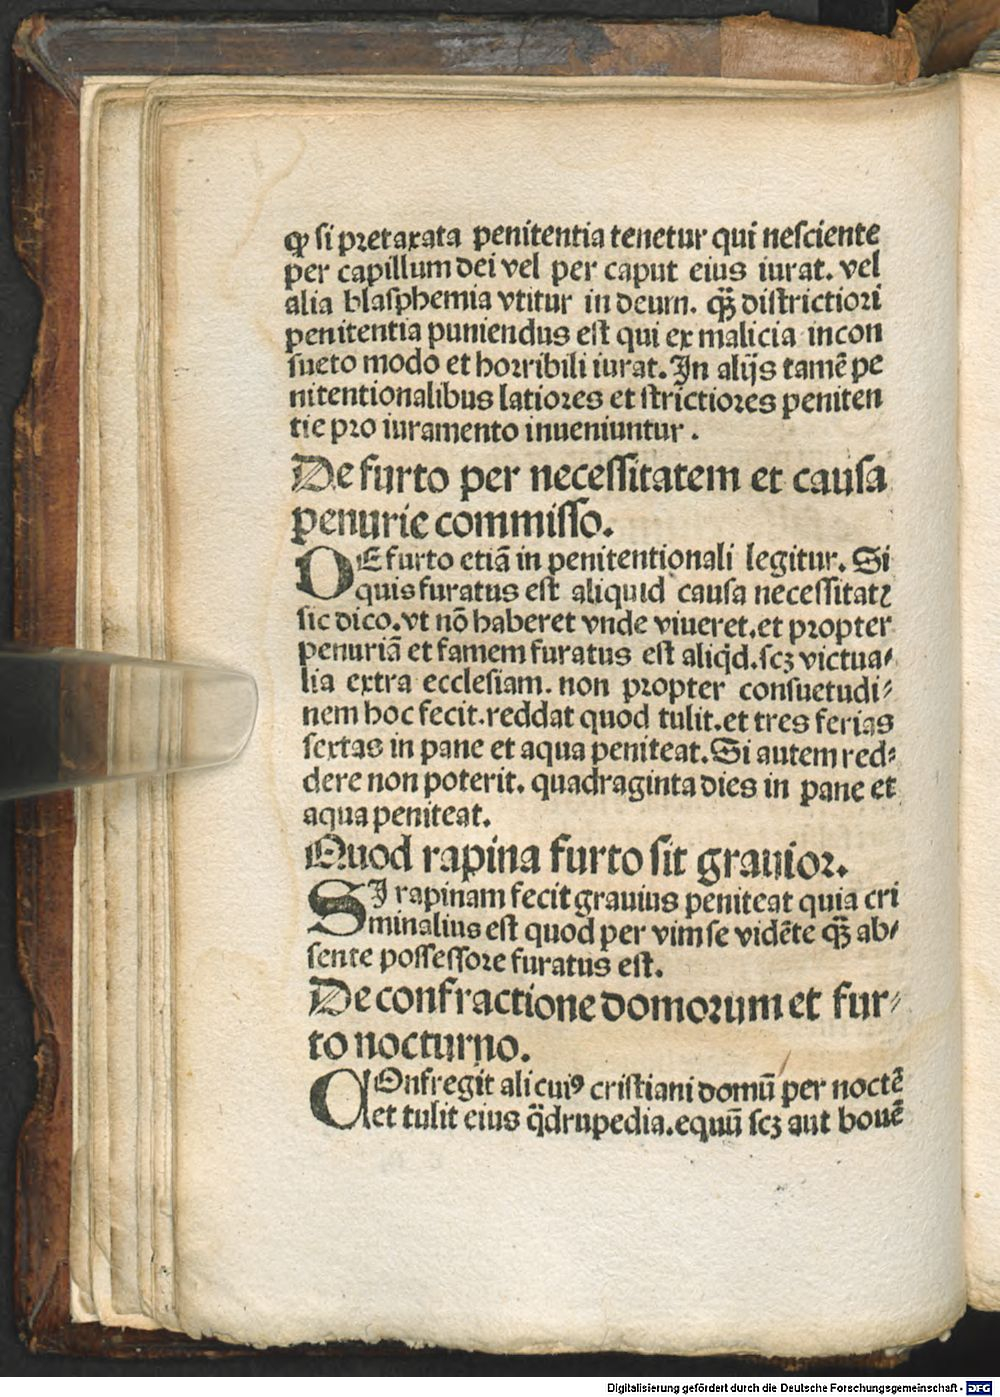 ꝙ ſi pꝛetaxata penitentia tenetur qui neſciente
per capillum dei vel per caput eius iurat. vel
alia blaſphemia vtitur in deum. qꝫ̃ diſtrictioꝛi
penitentia puniendus eſt qui ex malicia incon
ſueto modo et hoꝛribili iurat. In alijs tamē pe
nitentionalibus latioꝛes et ſtrictioꝛes peniten
tie pꝛo iuramento inueniuntur.
De furto per neceſſitatem et cauſa
penurie commiſſo.
DE furto etiā in penitentionali legitur. Si
quis furatus eſt aliquid cauſa neceſſitatꝭ
ſic dico. vt nō haberet vnde viueret. et pꝛopter
penuriā et famem furatus eſt aliqd̓. ſcꝫ victua⸗
lia extra eccleſiam. non pꝛopter conſuetudi⸗
nem hoc fecit. reddat quod tulit. et tres ferias
ſextas in pane et aqua peniteat. Si autem red⸗
dere non poterit. quadraginta dies in pane et
aqua peniteat.
Quod rapina furto ſit grauioꝛ.
SI rapinam fecit grauius peniteat quia cri
minalius eſt quod per vim ſe vidēte qꝫ̃ ab⸗
ſente poſſeſſoꝛe furatus eſt.
De confractione domoꝛum et fur⸗
to nocturno.
COnfregit alicuiꝰ criſtiani domū per noctē
et tulit eius q̄drupedia. equū ſcꝫ aut bouē
Digitalisierung gefördert durch die Deutsche Forschungsgemeinschaft - DFG